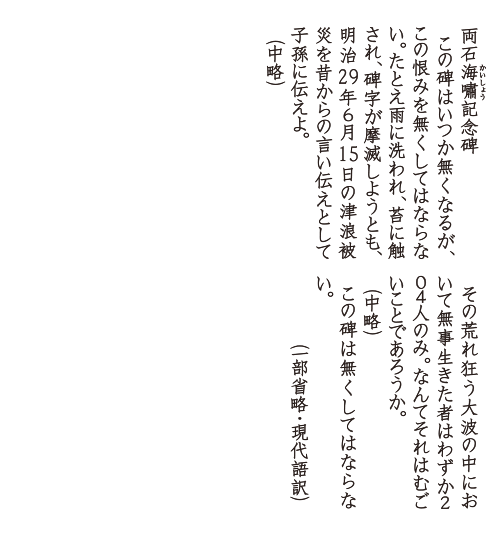 両石海嘯記念碑
かいしょう
この碑はいつか無くなるが、
この恨みを無くしてはならな
い。たとえ雨に洗われ、苔に触
され、碑字が摩滅しようとも、
明治29年6月15日の津浪被
災を昔からの言い伝えとして
子孫に伝えよ。
(中略)
その荒れ狂う大波の中にお
いて無事生きた者はわずか2
04人のみ。なんてそれはむご
いことであろうか。
(中略)
この碑は無くしてはならな
い。
(一部省略・現代語訳)